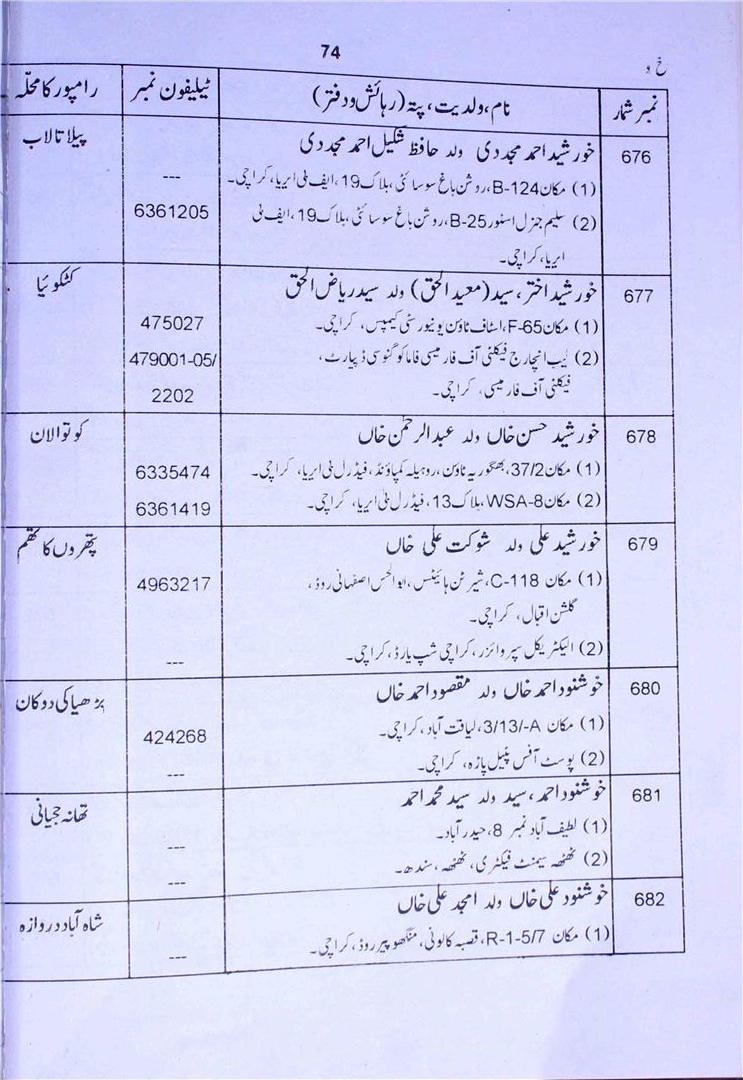 74
خ و
نمبر شمار
نام، ولدیت، پتہ (رہائش و دفتر)
ٹیلیفون نمبر
رامپور کا محلّہ
676
خورشید احمد مجددی ولد حافظ شکیل احمد مجددی
پیلا تالاب
(1) مکان B-124، روشن باغ سوسائٹی، بلاک 19، ایف بی ایریا، کراچی۔
---
(2) سلیم جنرل اسٹور B-25، روشن باغ سوسائٹی، بلاک 19، ایف بی
6361205
ایریا، کراچی۔
677
خورشید اختر، سید (معید الحق) ولد سید ریاض الحق
کٹکوئیا
(1) مکان F-65، اسٹاف ٹاؤن یونیورسٹی کیمپس، کراچی۔
475027
(2) لیب انچارج فیکلٹی آف فارمیسی فاماکوگنوسی ڈپارٹ،
479001-05/
فیکلٹی آف فارمیسی، کراچی۔
2202
678
خورشید حسن خاں ولد عبدالرحمٰن خاں
کوتوالان
(1) مکان 37/2، بھنگوریہ ٹاؤن، روہیلہ کمپاؤنڈ، فیڈرل بی ایریا، کراچی۔
6335474
(2) مکان WSA-8، بلاک 13، فیڈرل بی ایریا، کراچی۔
6361419
679
خورشید علی ولد شوکت علی خاں
پتھروں کا کھم
(1) مکان C-118، شیرٹن ہائیٹس، ابوالحسن اصفہانی روڈ،
4963217
گلشن اقبال، کراچی۔
(2) الیکٹریکل سپروائزر، کراچی شپ یارڈ، کراچی۔
---
680
خوشنود احمد خاں ولد مقصود احمد خاں
بڑھیا کی دوکان
(1) مکان 3/13/-A، لیاقت آباد، کراچی۔
424268
(2) پوسٹ آفس پٹیل پاڑہ، کراچی۔
---
681
خوشنود احمد، سید ولد سید محمد احمد
تھانہ جیانی
(1) لطیف آباد نمبر 8، حیدر آباد۔
---
(2) ٹھٹھہ سیمنٹ فیکٹری، ٹھٹھہ، سندھ۔
---
682
خوشنود علی خاں ولد امجد علی خاں
شاہ آباد دروازہ
(1) مکان R-1-5/7، قصبہ کالونی، منگھو پیر روڈ، کراچی۔
---